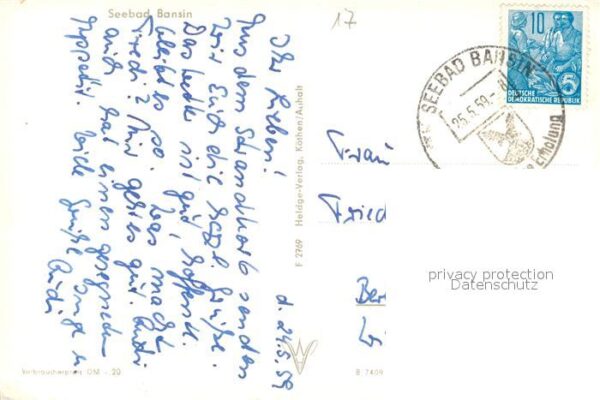 Seebad Bansin
17
d. 24.5.59
Ihr Lieben!
Aus dem Strandkorb senden
wir Euch die herzl. Grüße.
Das Wetter ist gut, hoffentl.
bleibt es so. Was macht
Friedl? Mir geht es gut. Rudi
auch hat einen gesegneten
Appetit. Viele Grüße
Rudi
F 2769 Heldge-Verlag, Köthen/Anhalt
Verbraucherpreis DM -.20
B 7409
10
5
DEUTSCHE
DEMOKRATISCHE REPUBLIK
SEEBAD BANSIN
25.5.59
Erholung
Frau
Fried
Ber
privacy protection
Datenschutz